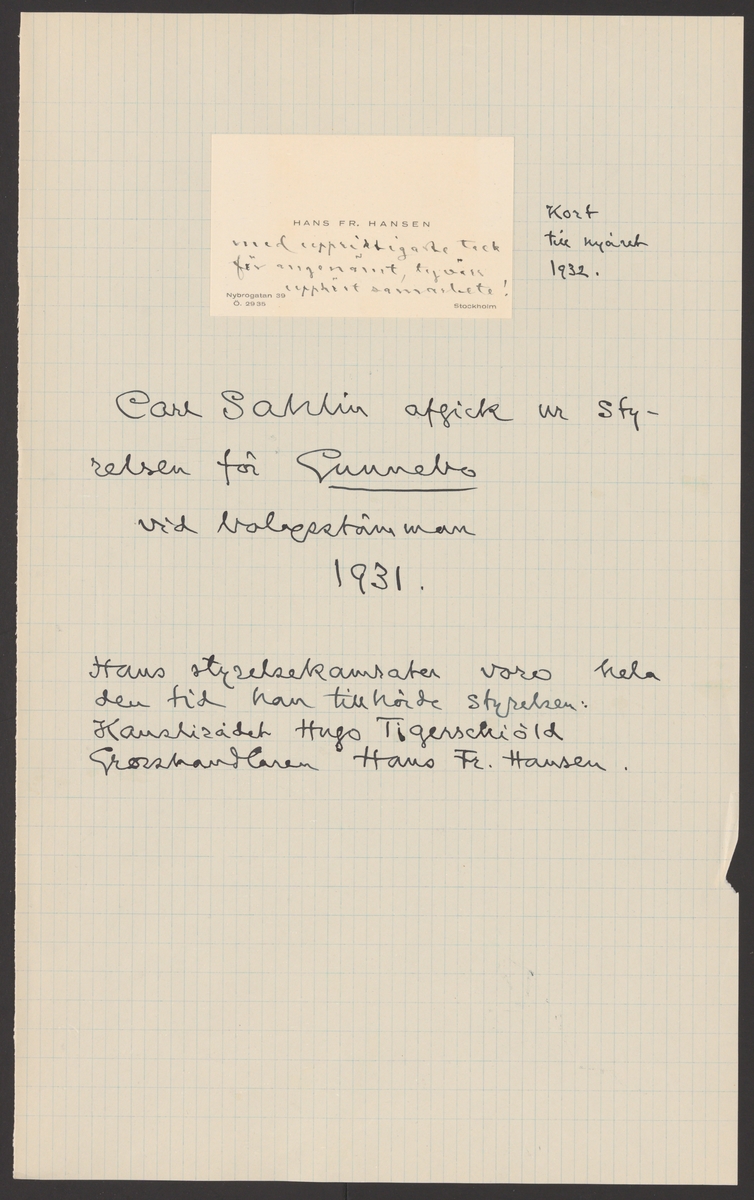 HANS FR. HANSEN
med uppriktigaste tack
för angenämt, tyvärr
upphört samarbete!
Nybrogatan 39
Ö. 2935
Stockholm
Kort
till nyåret
1932.
Carl Sahlin afgick ur Sty-
relsen för Gunnebo
vid bolagsstämman
1931.
Hans styrelsekamrater voro hela
den tid han tillhörde Styrelsen:
Kanslirådet Hugo Tigerschiöld
Grosshandlaren Hans Fr. Hansen.